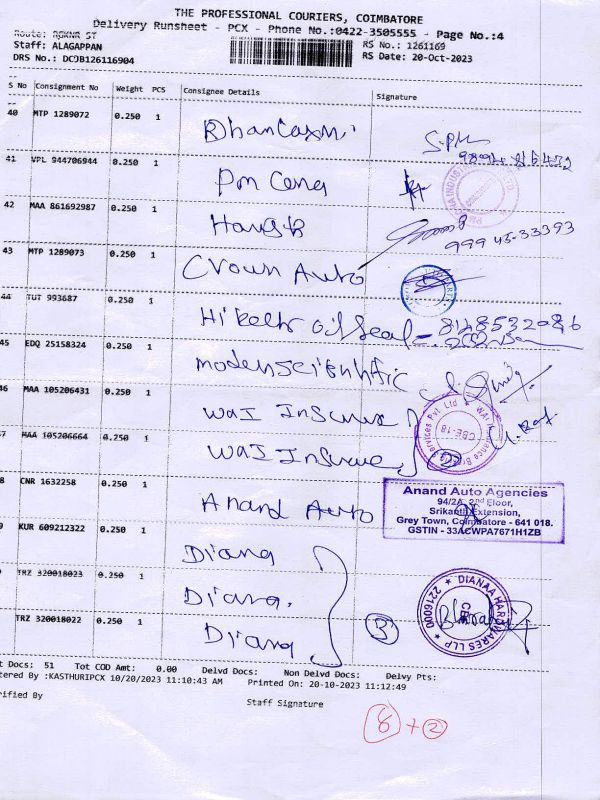 THE PROFESSIONAL COURIERS, COIMBATORE
Delivery Runsheet - PCX - Phone No.:0422-3505555 - Page No.:4
Staff: ALAGAPPAN
RS No.: 1261169
DRS No.: DC9B126116904
RS Date: 20-Oct-2023
S No Consignment No Weight PCS Consignee Details Signature
40 MTP 1289072 0.250 1
41 VPL 944706944 0.250 1
42 MAA 861692987 0.250 1
999 45-33393
43 MTP 1289073 0.250 1 Crown Auto
44 TUT 993687 0.250 1 oil Seal - 8148532086
45 EDQ 25158324 0.250 1 modenscientific
46 MAA 105206431 0.250 1 WaI Insurane
47 MAA 105206664 0.250 1 WaI Insurane 2
8 CNR 1632258 0.250 1 Anand Auto
Anand Auto Agencies
94/2A, 2nd Floor,
Srikanth Extension,
Grey Town, Coimbatore - 641 018.
GSTIN - 33ACWPA7671H1ZB
9 KUR 609212322 0.250 1 Diana
TRZ 320018023 0.250 1 Diana.
TRZ 320018022 0.250 1 Diana 3
DIANAA HARDWARES LLP ★ 2216000 ★
CBE
t Docs: 51 Tot COD Amt: 0.00 Delvd Docs: Non Delvd Docs: Delvy Pts:
tered By :KASTHURIPCX 10/20/2023 11:10:43 AM Printed On: 20-10-2023 11:12:49
rified By Staff Signature
8 + 2